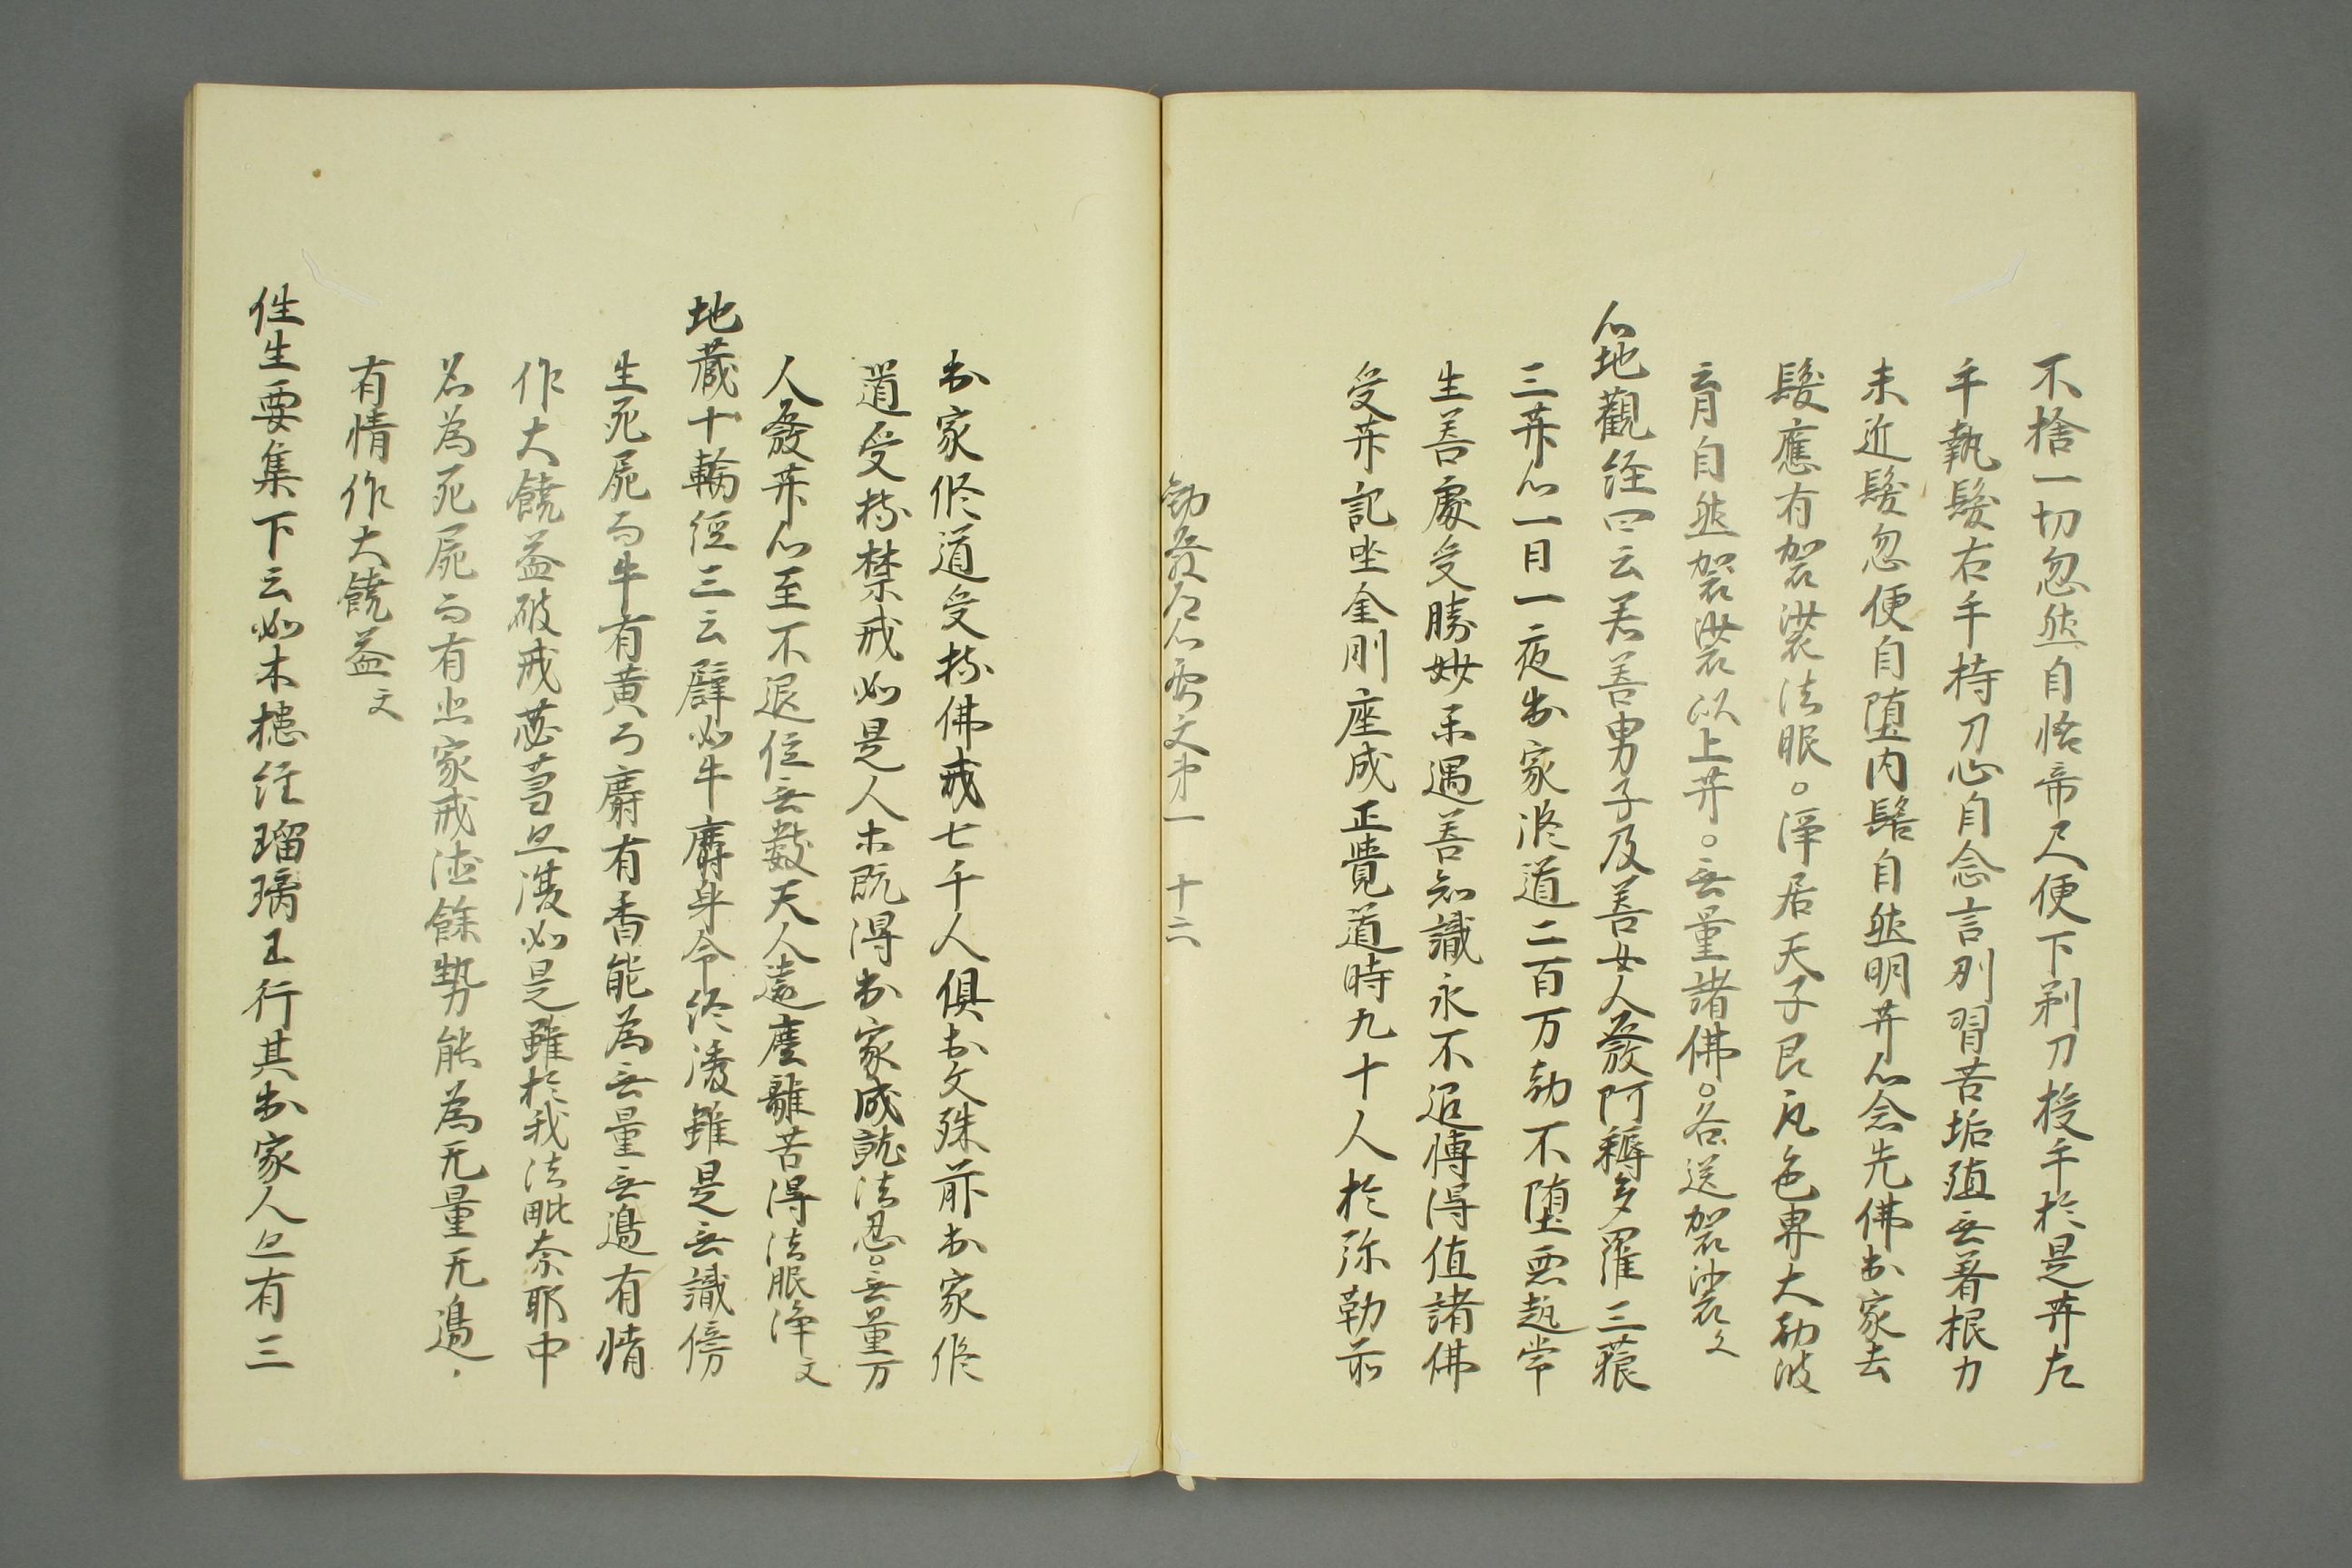 不捨一切忽然自悟帝尺便下剃刀授手於是𦬇左
手執髮右手持刀心自念言別習苦垢殖無著根力
未近髮忽便自墮内髻自然明𦬇心念先佛出家去
髮應有袈裟法眼。淨居天子昆凡色界大劫波
育自然袈裟以上𦬇。無量諸佛。各送袈裟文
心地觀経四云若善男子及善女人發阿耨多羅三藐
三𦬇心一日一夜出家修道二百万劫不堕悪趣常
生善處受勝妙樂遇善知識永不退轉得值諸佛
受𦬇記坐金剛座成正覺道時九十人於弥勒前
勸發𦬇心要文第一 十六
出家修道受持佛戒七千人俱出文殊前出家修
道受持禁戒如是人木既得出家成就法忍。無量万
人發𦬇心至不退位無數天人遠塵離苦得法眼淨文
地蔵十輪経三云譬如牛麝身命終後雖是無識傍
生死屍而牛有黄而麝有香能為無量無邊有情
作大饒益破戒苾蒭亦復如是雖於我法毗奈耶中
名為死屍而有出家戒德餘勢能為无量无邊
有情作大饒益文
往生要集下云如木槵経瑠璃王行其出家人亦有三